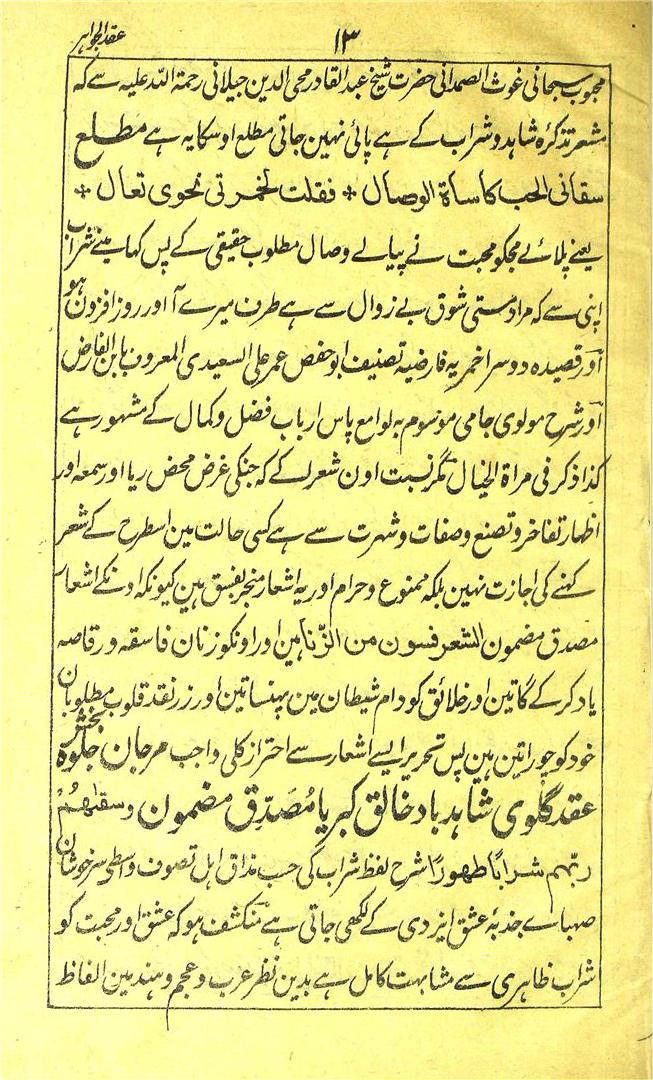 ۱۳
عقد الجواہر
محبوب سبحانی غوث الصمدانی حضرت شیخ عبدالقادر محی الدین جیلانی رحمۃ اللہ علیہ سے کہ
مشعر تذکرۂ شاہد و شراب کے ہے پائی نہین جاتی مطلع اوسکا یہ ہے مطلع
سقانی الحب کاساۃ الوصال * فقلت لخمرتی نحوی تعال *
یعنے پلائے مجکو محبت نے پیالے وصال مطلوب حقیقی کے پس کہا مینے شراب
اپنی سے کہ مراد مستی شوق بے زوال سے ہے طرف میرے آ اور روز افزون ہو
اور قصیدہ دوسرا خمریہ فارضیہ تصنیف ابو حفص عمر علی السعیدی المعروف بابن الفارض
اور شرح مولوی جامی موسوم بہ لوامع پاس ارباب فضل و کمال کے مشہور ہے
کذا ذکر فی مراۃ الخیال مگر نسبت اون شعرا کے کہ جنکی غرض محض ریا اور سمعہ اور
اظہار تفاخر و تصنع وصفات و شہرت سے ہے کسی حالت مین اسطرح کے شعر
کہنے کی اجازت نہین بلکہ ممنوع و حرام اور یہ اشعار منجر بفسق ہین کیونکہ اونکے اشعار
مصدق مضمون الشعر فسون من الزنا ہین اور اونکو زنان فاسقہ و رقاصہ
یاد کر کے گاتین اور خلائق کو دام شیطان مین پہنساتین اور زر نقد قلوب مطلوبان
خود کو چوراتین ہین پس تحریر ایسے اشعار سے احتراز کلی واجب مرجان جلوہ بخش
عقد گلوی شاہد باد خالق کبریا مُصَدِّق مضمون وسقٰھُمْ
ربّہم شرابًا طہورًا شرح لفظ شراب کی حسب مذاق اہل تصوف واسطے سرخوشان
صہباے جذبۂ عشق ایزدی کے لکھی جاتی ہے منکشف ہو کہ عشق اور محبت کو
شراب ظاہری سے مشابہت کامل ہے بدین نظر عرب و عجم و ہند مین الفاظ